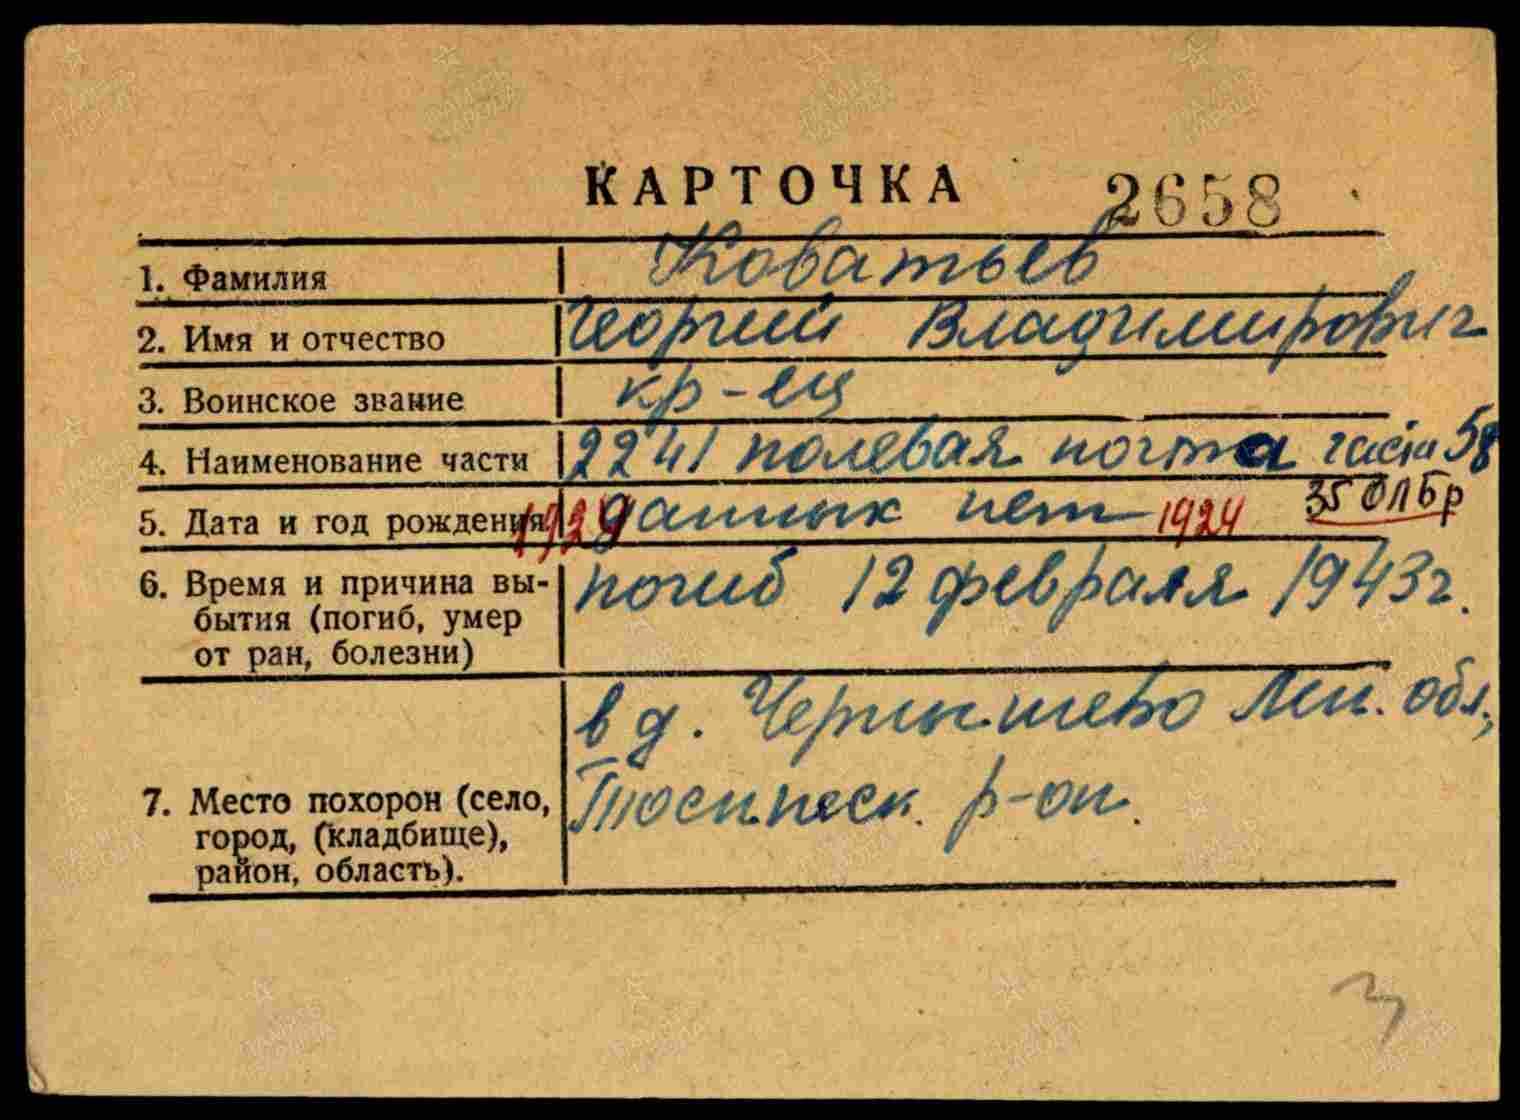 КАРТОЧКА 2658
1. Фамилия Коватьев
2. Имя и отчество Георгий Владимирович
3. Воинское звание кр-ец
4. Наименование части 2241 полевая почта части 58
5. Дата и год рождения 1924 данных нет 1924 35 ОЛБр
6. Время и причина вы- погиб 12 февраля 1943г.
бытия (погиб, умер
от ран, болезни)
в д. Чернышево Лен. обл.,
7. Место похорон (село, Тосненск. р-он.
город, (кладбище),
район, область).
ПАМЯТЬ НАРОДА